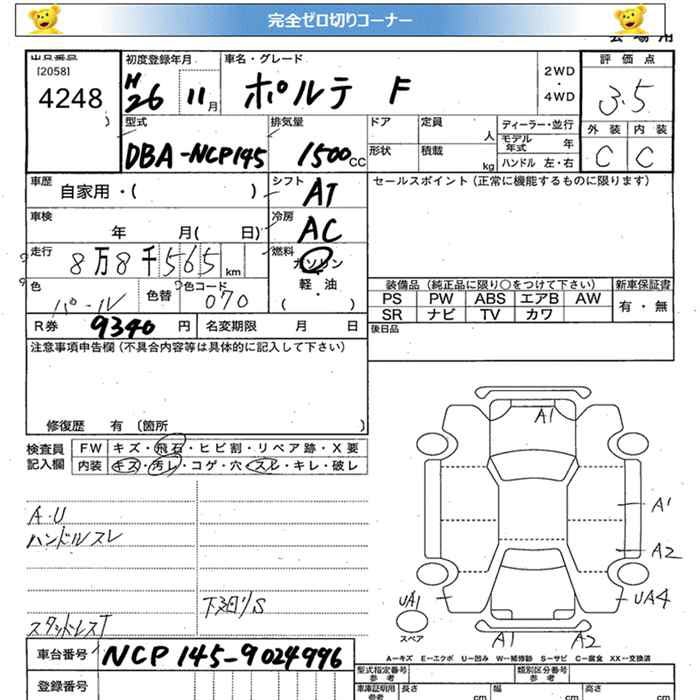 完全ゼロ切りコーナー
出品番号
[2058]
4248
初度登録年月
H26 11月
車名・グレード
ポルテ F
2WD
・
4WD
評価点
3.5
外装 内装
C C
型式
DBA-NCP145
排気量
1500cc
ドア
定員
人
形状
積載
kg
ディーラー・並行
モデル年式 年
ハンドル 左・右
車歴
自家用・( )
シフト
AT
車検
年 月( 日)
冷房
AC
走行
8万8千565km
燃料
ガソリン
軽・油
( )
色
パール
色替
色コード
070
R券 9340円
名変期限 月 日
セールスポイント(正常に機能するものに限ります)
装備品(純正品に限り○をつけて下さい)
新車保証書
PS PW ABS エアB AW
SR ナビ TV カワ
有・無
後日品
注意事項申告欄(不具合内容等は具体的に記入して下さい)
修復歴 有 〔箇所 〕
検査員記入欄
FW キズ・飛石・ヒビ割・リペア跡・X要
内装 キズ・汚レ・コゲ・穴・スレ・キレ・破レ
A・U
ハンドルスレ
下廻りS
スタッドレスT
A1
A1
A2
UA1
UA4
スペア
A1 A2
A=キズ E=エクボ U=凹み W=補修跡 S=サビ C=腐食 XX=交換済
車台番号 NCP145-9024996
登録番号
型式指定番号
参考
類別区分番号
参考
車庫証明用
参考
長さ cm
幅 cm
高さ cm